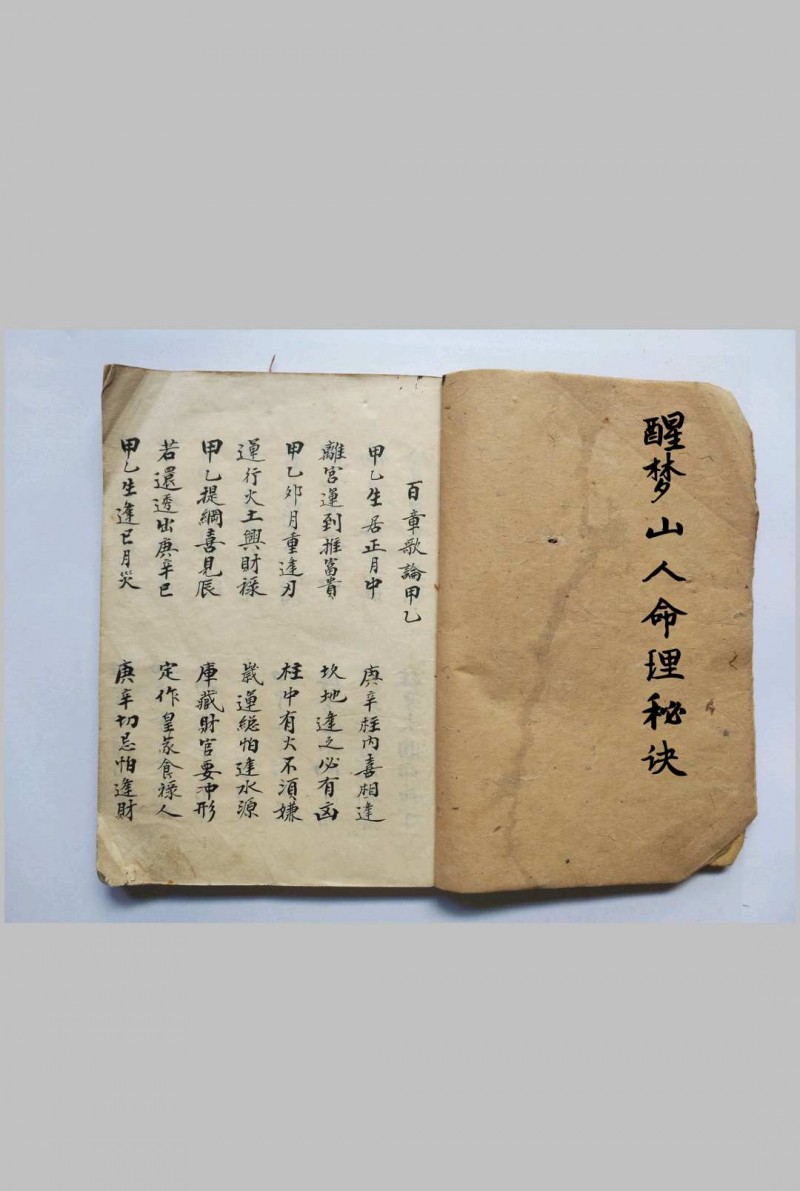 醒梦山人命理秘诀
百章歌論甲乙
甲乙生居正月中 庚辛柱内喜相逢
離宮運到推富貴 坎地逢之必有凶
甲乙卯月重逢刃 柱中有火不須嫌
運行火土興財禄 歲運総怕逢水源
甲乙提綱喜見辰 庫藏財官要冲形
若還透出庚辛巳 定作皇家食禄人
甲乙生逢巳月災 庚辛切忌怕逢財